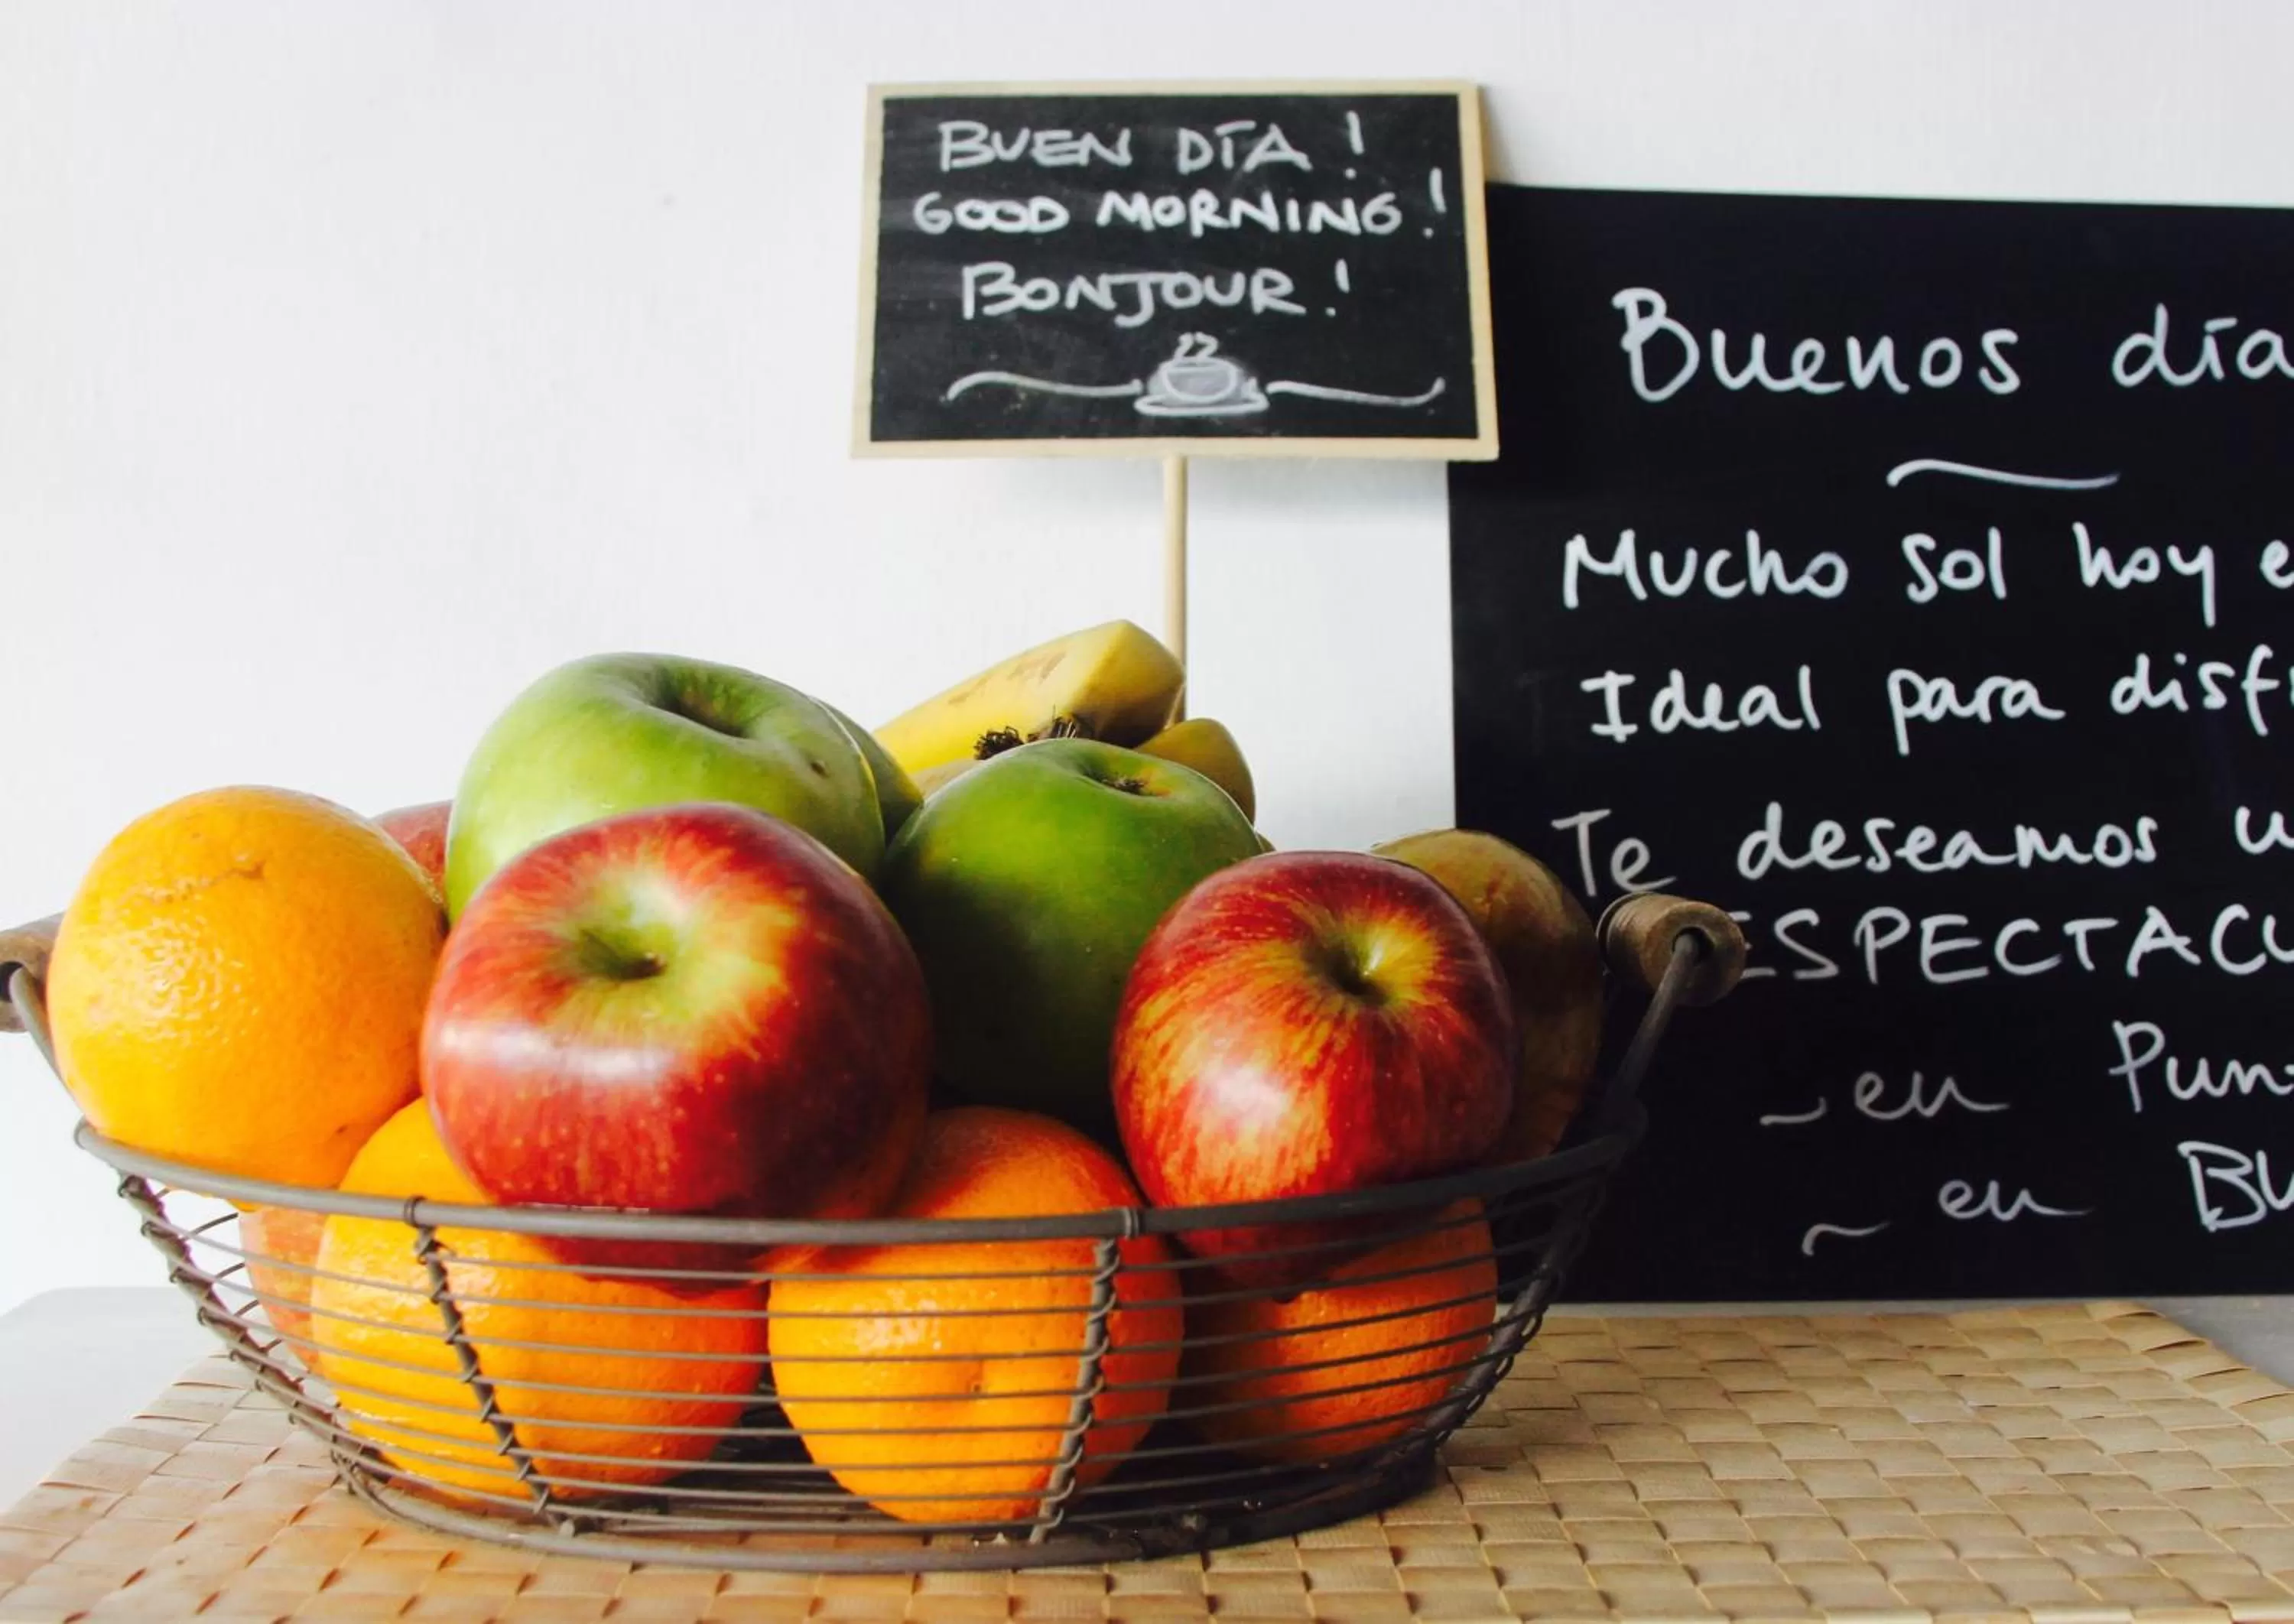 BUEN DÍA!
GOOD MORNING!
BONJOUR!
Buenos día
Mucho sol hoy e
Ideal para disf
Te deseamos u
ESPECTACU
en Pun
en BU